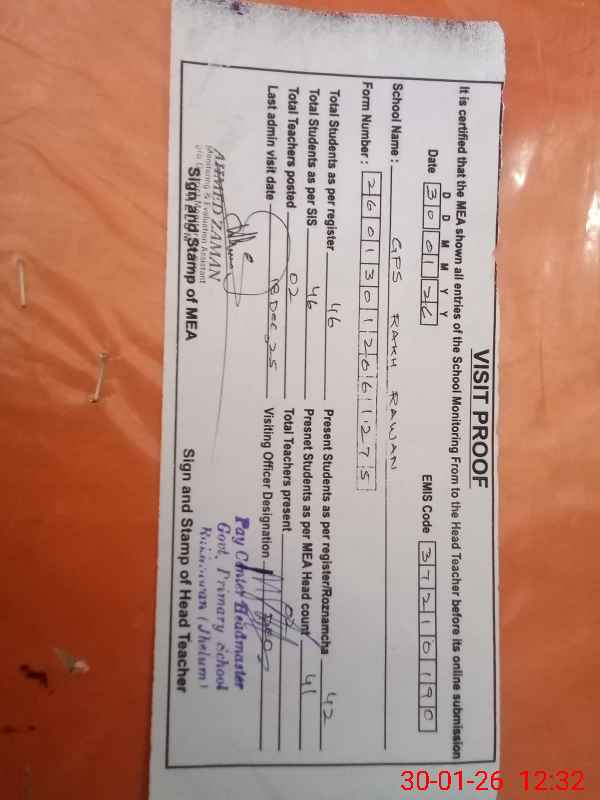 VISIT PROOF
It is certified that the MEA shown all entries of the School Monitoring From to the Head Teacher before its online submission
D D M M Y Y
Date 30 01 26 EMIS Code 37210190
School Name: GPS RAKH RAWAN
Form Number: 2601301206611275
Total Students as per register 46 Present Students as per register/Roznamcha 42
Total Students as per SIS 46 Presnet Students as per MEA Head count 41
Total Teachers posted 02 Total Teachers present 02
Last admin visit date 18 Dec 25 Visiting Officer Designation
AHMED ZAMAN
Monitoring & Evaluation Assistant
Pay Center Headmaster
Govt. Primary School
(Jhelum)
Sign and Stamp of MEA Sign and Stamp of Head Teacher
30-01-26 12:32